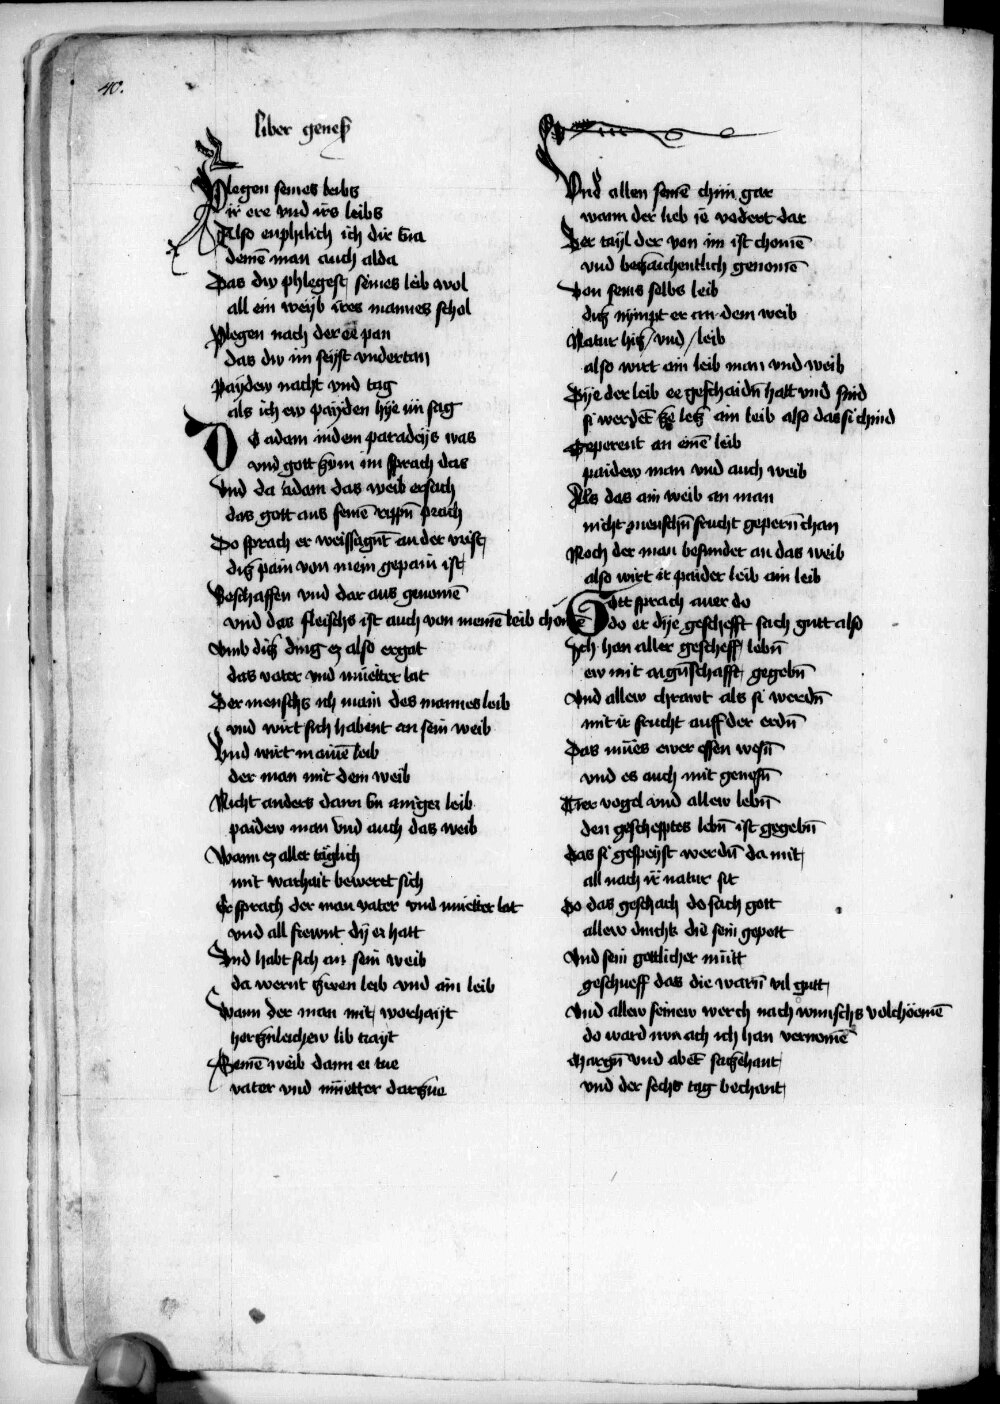 40.
liber genes
Plegen seines leibs
ir ere vnd irs leibs
Also enphilich ich dir Eua
deinē man auch alda
Das dw phlegest seines leib wol
all ein weyb ires mannes schol
Plegen nach der ee pan
das dw im seyst vndertan
Payden nacht vnd tag
als ich ew payden hye im sag
DO adam in dem paradeys was
vnd gott zym im sprach das
Vnd da adam das weib ersach
das gott aus seinē rippn̄ prach
Do sprach er weissagūt an der vrist
ditz pain von meim gepain ist
Beschaffen vnd dar aus genomē
vnd das fleischs ist auch von meinē leib chomē
Vmb ditz ding ez also ergat
das vater vnd mueter lat
Der menschs ich main des mannes leib
vnd wirt sich habent an sein weib
Vnd wirt in ainē leib
der man mit dem weib
Nicht anders dann ain ainiger leib
paidew man vnd auch das weib
Wann ez aller täglich
mit warhait beweret sich
Er sprach der man vater vnd mueter lat
vnd all frewnt dy er hatt
Vnd habt sich an sein weib
da wernt zwen leib vnd ain leib
Wann der man mit worhayt
hertzenleichew lib trayt
Seinē weib dann er tue
vater vnd mueter dartzue
Vnd allen seinē chinn gar
wann der lieb ie vodert dar
Der tayl der von im ist chomē
vnd betzaichentlich genomē
Von seins selbs leib
ditz nympt er an dem weib
Natur hitz / vnd / leib
also wirt ain leib man vnd weib
Dije der leib ee geschaidn̄ hatt vnd sind
si werdēt ze letz ain leib also das si chind
Geperent an einē leib
paidew man vnd auch weib
Als das ain weib an man
nicht menschn̄ frucht geperñ chan
Noch der man besunder an das weib
also wirt ir paider leib ain leib
Gott sprach auer do
do er dije geschefft sach gutt also
Ich han aller gescheff lebn̄
ew mit aign̄schafft gegebn̄
Vnd allew chrawt als si werdn̄
mit ir frucht auff der erdn̄
Das mues ewer essen wesn̄
vnd es auch mit genesn̄
Tier vogel vnd allew lebn̄
den geschepptes lebn̄ ist gegebn̄
Das si gespeyst werdn̄ da mit
all nach ir natur sit
Do das geschach do sach gott
allew dinch die sein gepott
Vnd sein gottlicher muett
geschueff das die warn̄ vil gutt
Vnd allew seinew werch nach wunschs volchöemē
do ward nun ach ich han vernomē
Margn̄ vnd abēt satzehant
vnd der sechs tag bechant